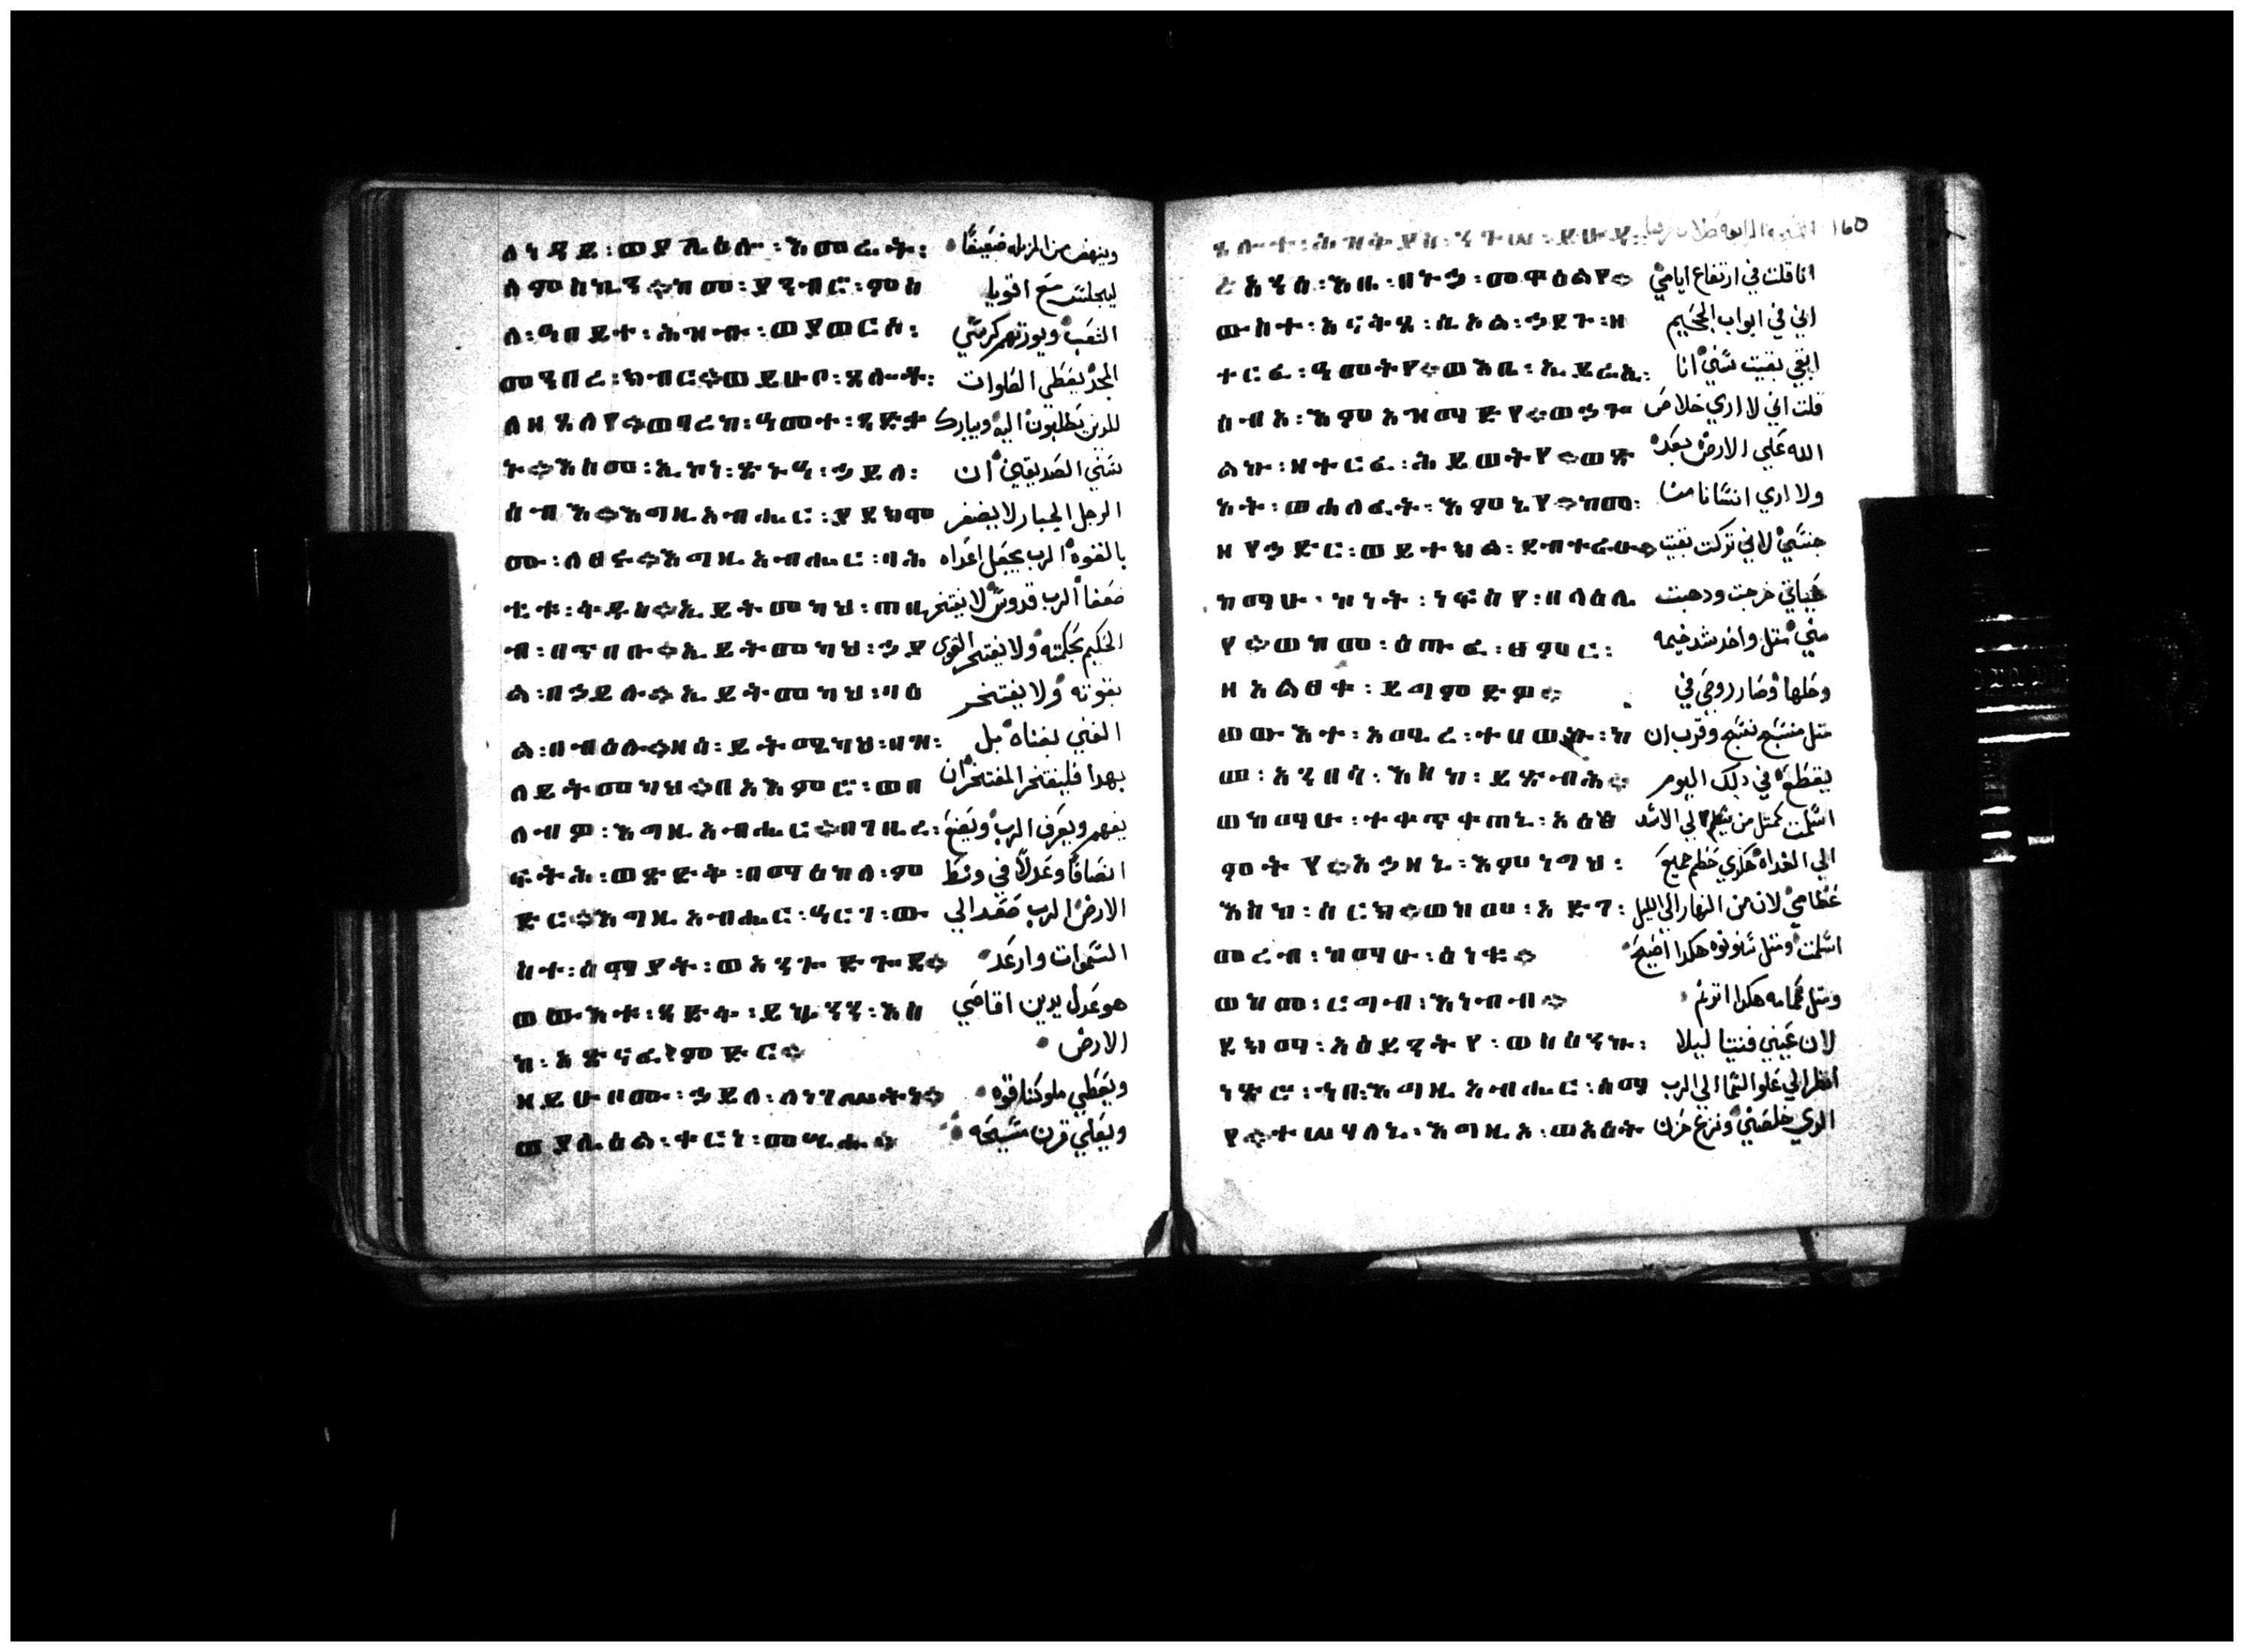 ለነዳይ፡ወያሌዕሎ፡እመሬት፡ وينهض من المزبله ضعيفًا
ለምስኪን።ከመ፡ያንብር፡ምስ ليجلس مع اقويا
ለ፡ዓበይተ፡ሕዝብ፡ወያወርስ፡ الشعب ويورثهم كرسي
መንበረ፡ክብር።ወይሁብ፡ጸሎተ፡ المجد يعطي الصلوات
ለዘጸለየ።ወባረከ፡ዓመተ፡ጻድቃ للدين يطلبون اليه ويبارك
ን።እስመ፡ኢኮነ፡ጽኑዓ፡ኃይለ፡ سني الصديقين ان
ሰብእ።እግዚአብሔር፡ያደክሞ الرجل الجبار لا يضفر
ሙ፡ለፀሩ።እግዚአብሔር፡ባሕ بالقوه الرب يجعل اعداه
ቲቱ፡ቅዱስ።ኢይትመካህ፡ጠቢ ضعفا الرب قدوس لا يفتخر
ብ፡በጥበቡ።ኢይትመካህ፡ኃያ الحكيم بحكمته ولا يفتخر القوى
ል፡በኃይሉ።ኢይትመካህ፡ባዕ بقوته ولا يفتخر
ል፡በብዕሉ።ዘሰ፡ይትሜካህ፡በዝ፡ الغني بغناه بل
ለይትመካህ።በአእምሮ፡ወበ بهدا فليفتخر المفتخر ان
ልብዎ፡እግዚአብሔር።በገቢረ፡ يفهم ويعرف الرب ويصنع
ፍትሕ፡ወጽድቅ፡በማዕከለ፡ም انصافا وعدلا في وسط
ድር።እግዚአብሔር፡ዓርገ፡ው الارض الرب صعد الي
ስተ፡ሰማያት፡ወአንጐድጐደ። السموات وارعد
ወውእቱ፡ጻድቅ፡ይኴንን፡እስ هو عدل يدين اقاصي
ከ፡አጽናፈ፡ምድር። الارض
ዘይሁቦሙ፡ኃይለ፡ለነገሥትነ። ويعطي ملوكنا قوه
ወያሌዕል፡ቀርነ፡መሲሑ። ويعلي قرن مسيحه
ጸሎተ፡ሕዝቅያስ፡ንጉሠ፡ይሁዳ፡ ١٦٥
አንሰ፡እቤ፡በኑኃ፡መዋዕልየ። انا قلت في ارتفاع ايامي
ውስተ፡አናቅጺ፡ሲኦል፡ኃይጉ፡ዘ اني في ابواب الجحيم
ተርፈ፡ዓመትየ።ወእቤ፡ኢይሬኢ፡ ابقي بقيت سني انا
ሰብአ፡እምአዝማድየ።ወኃጐ قلت اني لا اري خلاص
ልኩ፡ዘተርፈ፡ሕይወትየ።ወፃ الله علي الارض بعد
እት፡ወሐለፈት፡እምኔየ።ከመ፡ ولا اري انسانا من
ዘየኃድር፡ወይተክል፡ደብተራሁ። جنسي لاني تركت بقيت
ከማሁ፡ኮነት፡ነፍስየ፡በላዕሌ حياتي خرجت ودهبت
የ።ወከመ፡ሰጡፈ፡ፀምር፡ مني متل واحد شد خيمه
ዘአልፀቀ፡ይግምድዎ። وحلها وصار روحي في
ወውእተ፡አሚረ፡ተሀወክ፡ከ وقرب ان
መ፡አንበሳ፡እስከ፡ይጸብሕ። يقطع في دلك اليوم
ወከማሁ፡ተቀጥቀጠኒ፡አዕፅ الي الاسد
ምትየ።አኃዘኒ፡እምነግህ፡ الي الغداه هكدي حطم جميع
እስከ፡ሰርክ።ወከመ፡አድገ፡ عظامي لان من النهار الي الليل
መረብ፡ከማሁ፡ اسلمت ومتل سنونوه هكدا اصيح
ወከመ፡ርግብ፡እነብብ። ومتل حمامه هكدا اترنم
ደክማ፡አዕይንትየ፡ لان عيني فنيتا ليلا
ነጽሮ፡እግዚአብሔር፡ሰማ انظر الي علو السما الي الرب
የ።ተሣሃለኒ፡እግዚአ፡ወአዕት الدي خلصني ونزع حزن